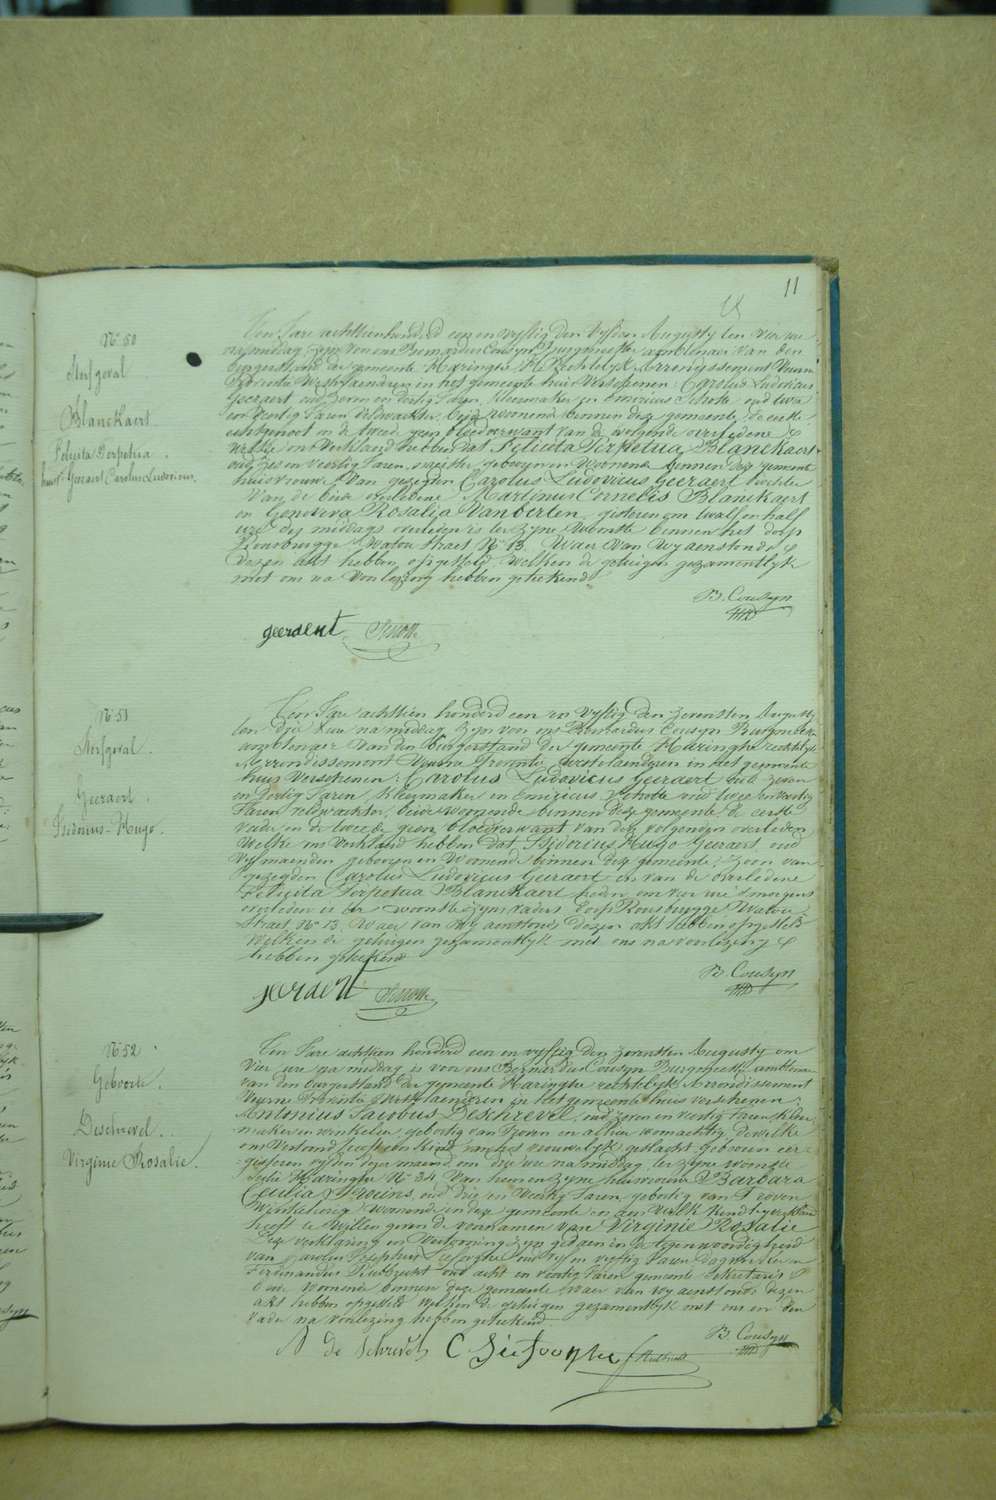 11
N° 50
Sterfgeval
Blanckaert
Felicita Perpetua.
huisv. Geeraert Carolus Ludovicus.
Ten Jare achttienhonderd een en vyftig den vyfden Augusty ten vier ure
namiddag, zyn voor ons Bernardus Cousyn Burgmeester ambtenaer van den
burgerstand der gemeente Haringhe Rechtelyk Arrondissement Veurne
Provincie Westvlaenderen in het gemeente huis Verschenen: Carolus Ludovicus
Geeraert oud zeven en dertig Jaren, Kleermaker en Emiricus Schotte oud twee
en veertig Jaren veldwachter, beide woonende binnen deze gemeente, de eerste
echtgenoot en de tweede geen bloedverwant van de volgende overledene
welke ons Verklaerd hebben dat Felicita Perpetua Blanckaert
oud zes en veertig Jaren, geboren en Woonende binnen deze gemeente
huisvrouw van gezegden Carolus Ludovicus Geeraert dochter
Van de beide overledene Martinus Cornelis Blanckaert
en Genoveva Rosalia Vanberten, gisteren om twalf en half
ure des middags overleden is ter zyne Woonste binnen het dorp
Rousbrugge Watou Straet N° 13. Waer van wy aenstonds
dezen akt hebben opgesteld, welken de getuigen gezamentlyk
met ons na voorlezing hebben geteekend
B. Cousyn
geeraert Schotte
N° 51
Sterfgeval.
Geeraert.
Isidorius-Hugo.
Ten Jare achttien honderd een en vyftig den zevensten Augusty
ten drie ure na middag zyn voor ons Bernardus Cousyn Burgmeester
ambtenaer van den burgerstand der gemeente Haringhe rechtelyk
Arrondissement Veurne Provintie Westvlaenderen in het gemeente
huis Verschenen: Carolus Ludovicus Geeraert oud zeven
en dertig Jaren, Kleermaker en Emiricus Schotte oud twee en veertig
Jaren veldwachter, beide woonende binnen deze gemeente, de eerste
vader en de tweede geen bloedverwant van den volgenden overleden
Welke ons Verklaerd hebben dat Isidorius Hugo Geeraert, oud
vyf maenden geboren en Woonende binnen deze gemeente, zoon van
gezegden Carolus Ludovicus Geeraert en van de overledene
Felicita Perpetua Blanckaert heden om vier ure 's morgens
overleden is ter woonste zyns vaders dorp Rousbrugge Watou
Straet N° 13. Waer van wy aenstonds dezen akt hebben opgesteld
welken de getuigen gezamentlyk met ons na voorlezing
hebben geteekend
B. Cousyn
geeraert Schotte
N° 52
Geboorte.
Deschrevel.
Virginie Rosalie.
Ten Jare achttien honderd een en vyftig den zevensten Augusty om
Vier ure na middag is voor ons Bernardus Cousyn Burgmeester ambtenaer
van den burgerstand der gemeente Haringhe rechtelyk Arrondissement
Veurne Provintie Westvlaenderen in het gemeente huis verschenen:
Antonius Jacobus Deschrevel, oud zeven en veertig Jaren, kleer
maker en winkelier, geboortig van Proven en alhier woonachtig Dewelke
ons Vertoond heeft een Kind van het vrouwelyk geslacht geboren eer-
gisteren vyfden dezer maend om drie ure na middag ter zyne woonste
Haringhe N° 34. Van hem en zyne huisvrouw Barbara
Cecilia Sweins, oud drie en Veertig Jaren, geboortig van Proven
Winkelierig woonende in deze gemeente en aen welk kind hy verklaerd
heeft te Willen geven de voornamen van Virginie Rosalie
Deze verklaring en Vertooning zyn gedaen in de tegenwoordigheid
van Carolus Josephus oud vyf en vyftig Jaren dagwerker en
Ferdinandus oud acht en veertig Jaren gemeente Sekretaris
beide woonende binnen deze gemeente, waer van wy aenstonds dezen
akt hebben opgesteld welken de getuigen gezamentlyk met ons en den
vader na voorlezing hebben geteekend
B. Cousyn
A de Schrevel C